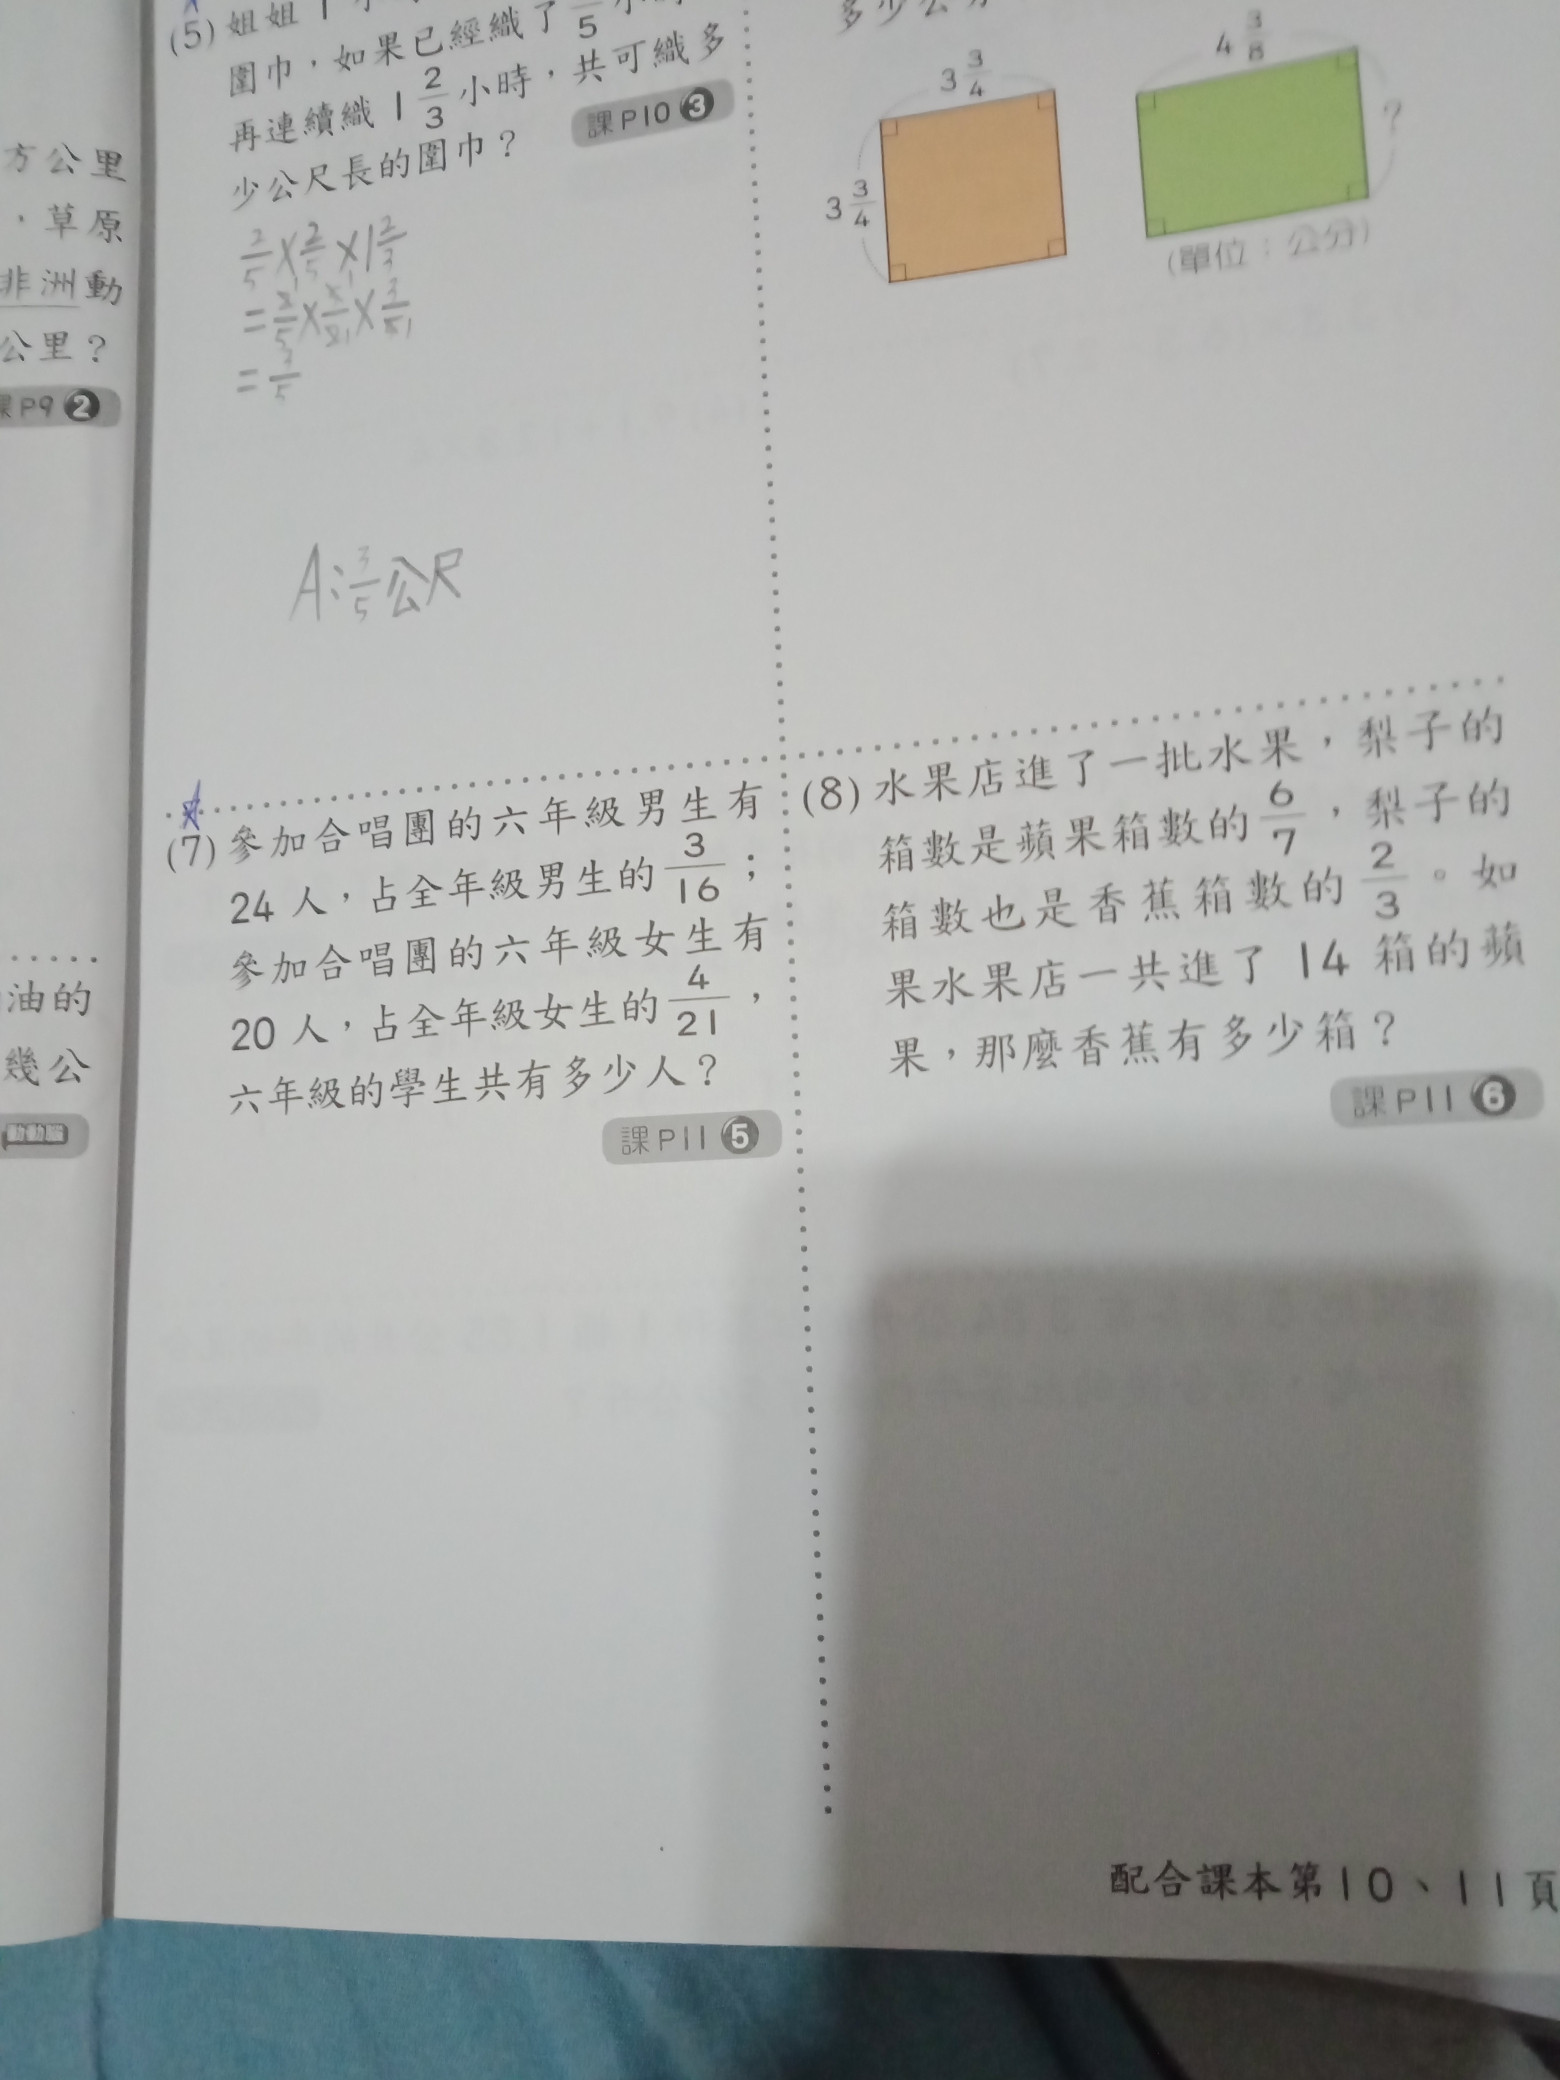 方公里
，草原
非洲動
公里？
課P9 ❷
油的
幾公
動動腦
(5) 姐姐 1
圍巾，如果已經織了 5
再連續織 1 2/3 小時，共可織多
少公尺長的圍巾？
課P10 ❸
2/5 × 2/5 × 1 2/3
=
= 3/5
A: 3/5 公尺
多少公
3 3/4
3 3/4
4 3/8
?
(單位：公分)
(7) 參加合唱團的六年級男生有
24 人，占全年級男生的 3/16；
參加合唱團的六年級女生有
20 人，占全年級女生的 4/21，
六年級的學生共有多少人？
課P11 ❺
(8) 水果店進了一批水果，梨子的
箱數是蘋果箱數的 6/7，梨子的
箱數也是香蕉箱數的 2/3。如
果水果店一共進了 14 箱的蘋
果，那麼香蕉有多少箱？
課P11 ❻
配合課本第10、11頁